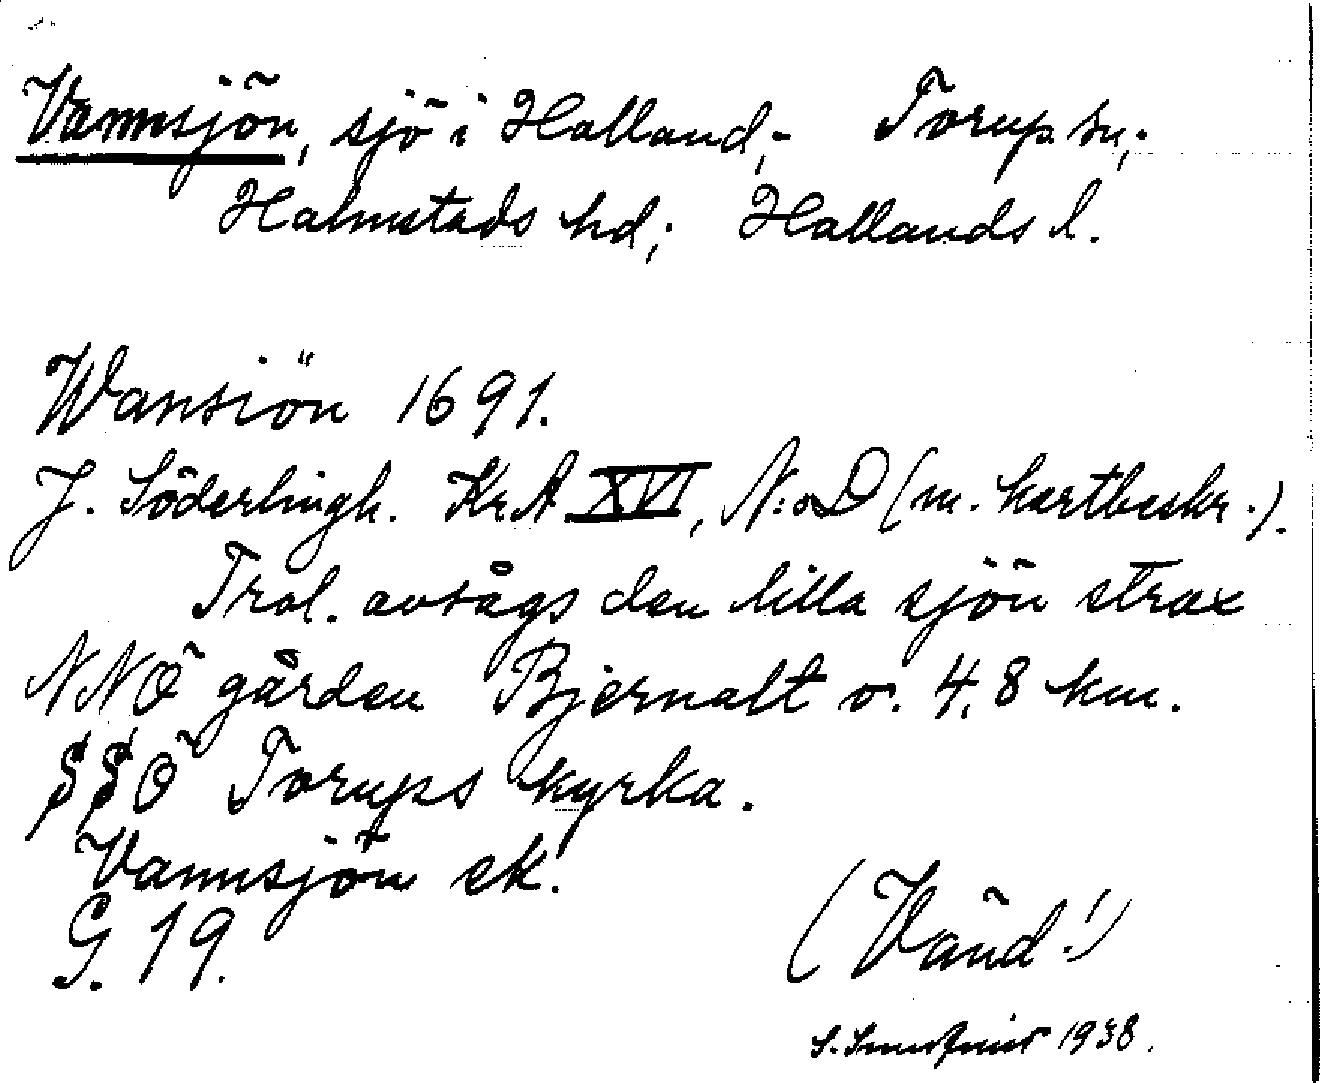 Vannsjön, sjö i Halland,- Torup sn;
Halmstads hd; Hallands l.
Wansiön 1691.
J. Söderlingh. Kr.A XVI, N:o D (m. kartbeskr.).
Trol. avsågs den lilla sjön strax
NNÖ gården Bjernalt o. 4,8 km.
SSÖ Torups kyrka.
Vannsjön ek.
G. 19.
(Vänd!)
S. 1938.